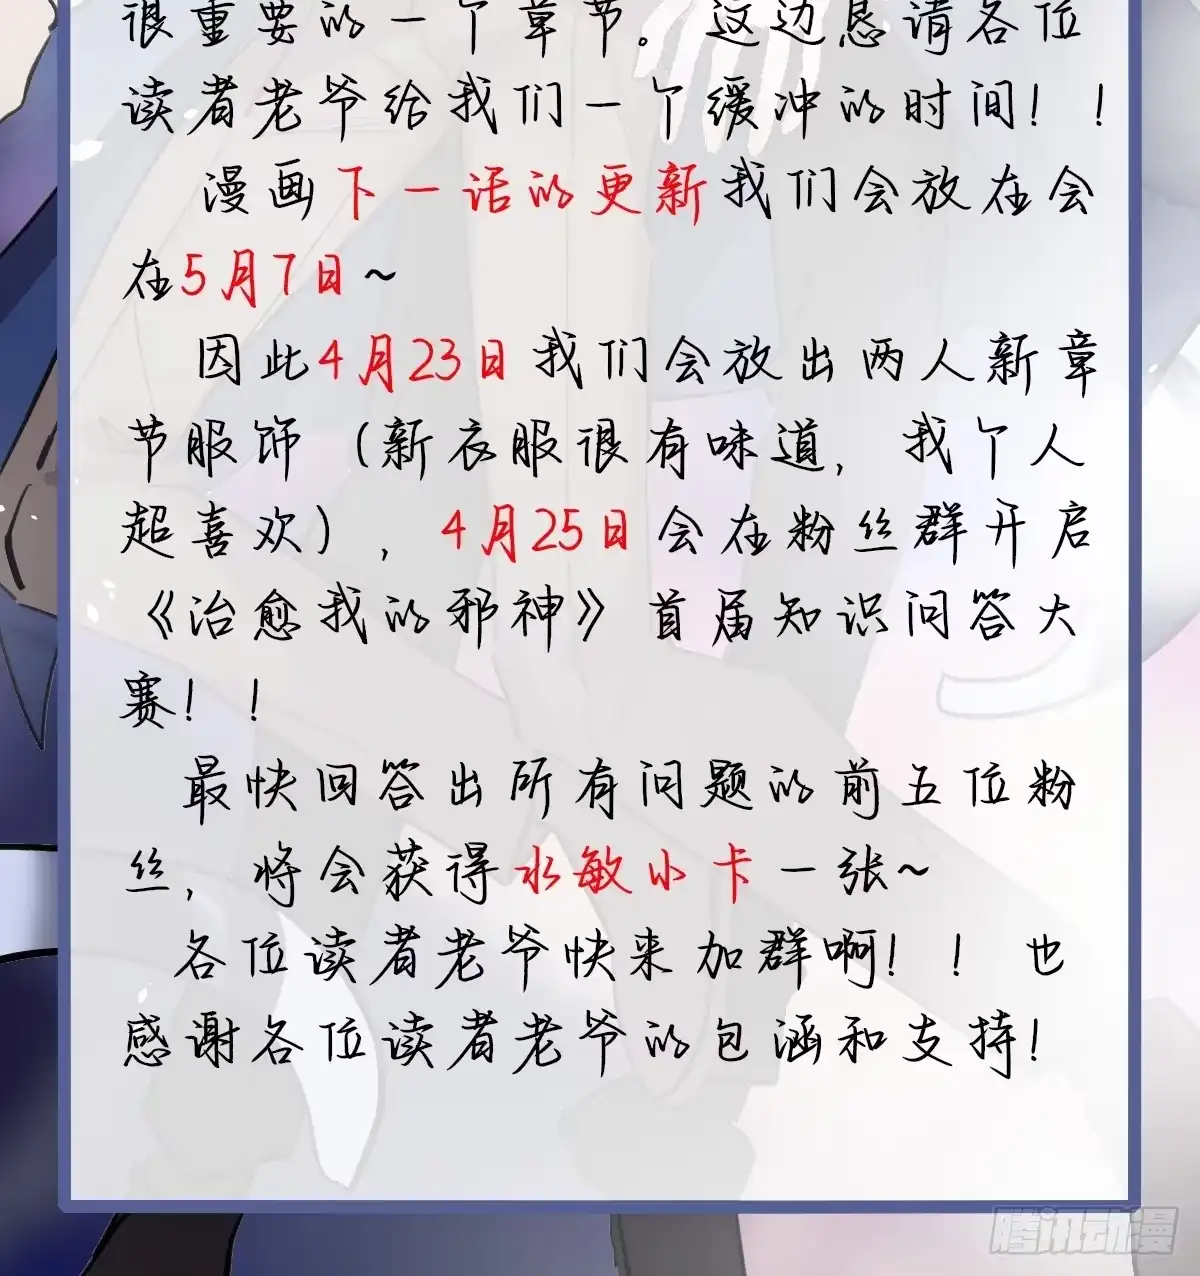 很重要的一个章节。这边恳请各位
读者老爷给我们一个缓冲的时间！！
漫画下一话的更新我们会放在会
在5月7日~
因此4月23日我们会放出两人新章
节服饰（新衣服很有味道，我个人
超喜欢），4月25日会在粉丝群开启
《治愈我的邪神》首届知识问答大
赛！！
最快回答出所有问题的前五位粉
丝，将会获得水敏小卡一张~
各位读者老爷快来加群啊！！也
感谢各位读者老爷的包涵和支持！
腾讯动漫